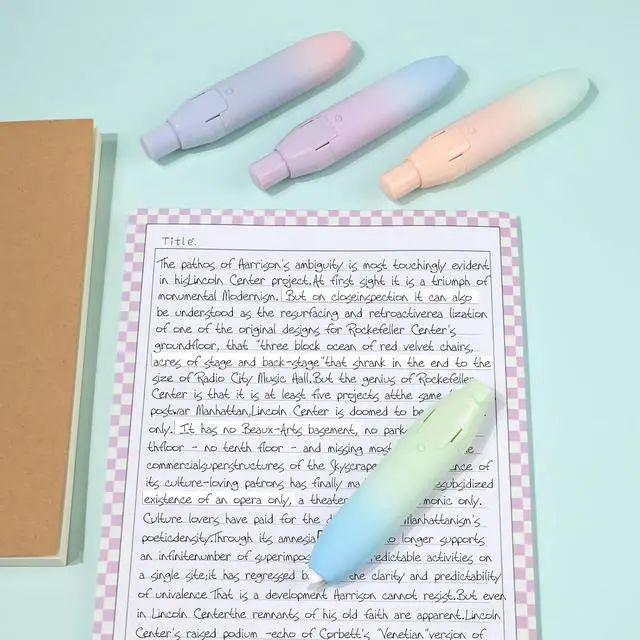 Title.
The pathos of Harrison's ambiguity is most touchingly evident
in hisLincoln Center project.At first sight it is a triumph of
monumental Modernism. But on closeinspection it can also
be understood as the resurfacing and retroactiverea lization
of one of the original designs for Rockefeller Center's
groundfloor, that "three block ocean of red velvet chairs,
acres of stage and back-stage"that shrank in the end to the
size of Radio City Music Hall.But the genius of Rockefeller
Center is that it is at least five projects atthe same
postwar Manhattan,Lincoln Center is doomed to be
only. It has no Beaux-Arts basement, no park
thfloor - no tenth floor - and missing most
commercialsuperstructures of the Skyscraper
its culture-loving patrons has finally subsidized
existence of an opera only, a theater only.
Culture lovers have paid for the Manhattanism's
poeticdensity.Through its amnesia longer supports
an infinitenumber of activities on
a single site;it has regressed the clarity and predictability
of univalence.That is a development Harrison cannot resist.But even
in Lincoln Centerthe remnants of his old faith are apparent.Lincoln
Center's raised podium -echo of Corbett's "Venetian"version of